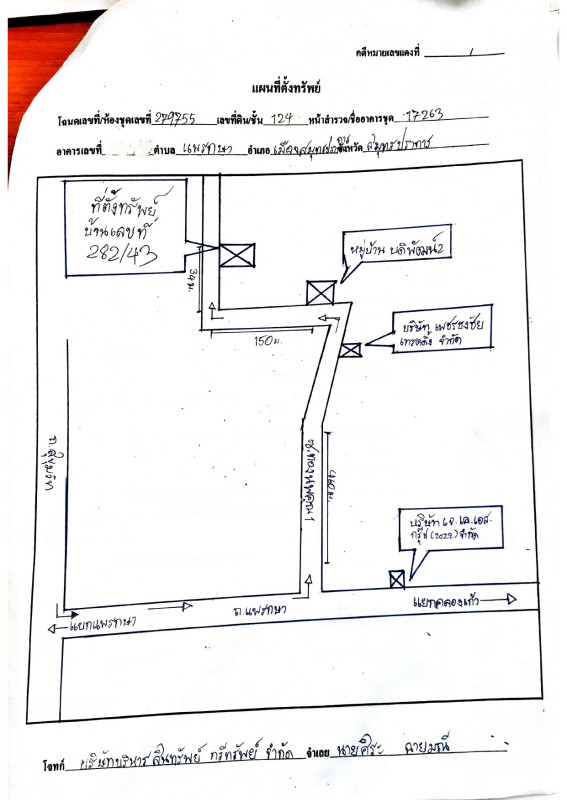 คดีหมายเลขแดงที่ 1
แผนที่ตั้งทรัพย์
โฉนดเลขที่/ห้องชุดเลขที่ 279755 เลขที่ดิน/ชั้น 124 หน้าสำรวจ/ชื่ออาคารชุด 17263
อาคารเลขที่ ตำบล แพรกษา อำเภอ เมืองสมุทรปราการ จังหวัด สมุทรปราการ
ที่ตั้งทรัพย์
บ้านเลขที่
282/43
หมู่บ้าน บดีพัฒน์2
34ม.
150 ม.
บริษัท เพชรธงชัย
เทรดดิ้ง จำกัด
ถ.สุขุมวิท
460 ม.
บริษัท เจ.เค.เอส.
กรุ๊ป(2022)จำกัด
แยกแพรกษา
ถ.แพรกษา
แยกคลองเก้า
โจทก์ บริษัทบริหารสินทรัพย์ ทรีทรัพย์ จำกัด จำเลย นายศิระ ฉายมณี